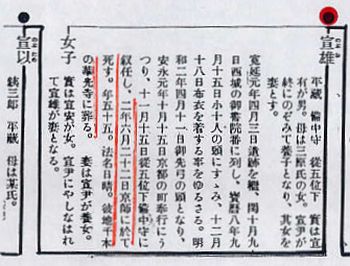 宣雄
平蔵 備中守 従五位下 實は宣
有が男。母は三原氏の女。宣尹が
終にのぞみて養子となり、其女を
妻とす。
寛延元年四月三日遺跡を繼、閏十月九
日西城の御書院番に列し、寳暦八年九
月十五日小十人の頭にすゝみ、十二月
十八日布衣を着する事をゆるさる。明
和二年四月十一日御先弓の頭となり、
安永元年十月十五日京都の町奉行にう
つり、十一月十五日従五位下備中守に
叙任し、二年六月二十二日京師に於て
死す。年五十五。法名日晴。彼地千本
の華光寺に葬る。 妻は宣尹が養女。
女子
實は宣安が女。宣尹にやしなはれ
て宣雄が妻となる。
宣以
銕三郎 平蔵 母は某氏。